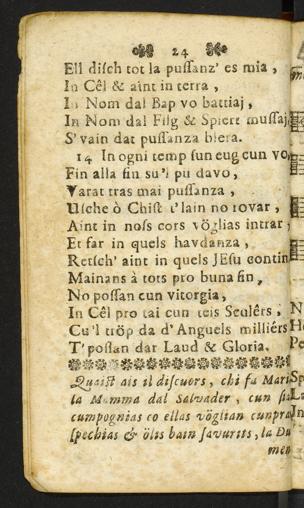 24
Ell disch tot la pussanz' es mia,
In Cêl & aint in terra,
In Nom dal Bap vo battiaj,
In Nom dal Filg & Spiert mussaj
S'vain dat pussanza blera.
14 In ogni temp sun eug cun vo,
Fin alla fin su'l pu davo,
Varat tras mai pussanza,
Usche ò Chist t'lain no rovar,
Aint in noss cors vöglias intrar,
Et far in quels havdanza,
Retsch' aint in quels JEsu contin
Mainans à tots pro buna fin,
No possan cun vitorgia,
In Cêl pro tai cun teis Seulêrs,
Cu'l tröp da d'Anguels milliérs
T'possan dar Laud & Gloria.
Quaist ais il discuors, chi fa Mari
la Mamma dal Salvader, cun
cumpognias co ellas vöglian cunpra
spechias & ölis bain savurits, la Du
men